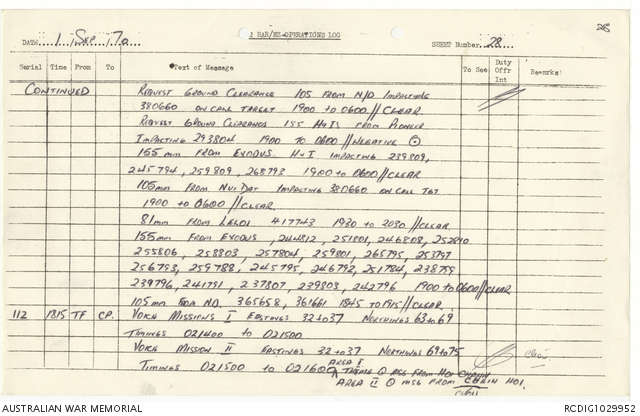 2 RAR/NZ OPERATIONS LOG
DATE: 1 Sep 70
SHEET Number 28
Serial Time From To Text of Message To See Duty Offr Int Remarks
CONTINUED REQUEST GROUND CLEARANCE 105 FROM N/D IMPACTING
380660 ON CALL TARGET 1900 to 0600 // CLEAR
REQUEST GROUND CLEARANCE 155 H+I's FROM PIONEER
IMPACTING 293804 1900 to 0600 // NEGATIVE
155mm FROM EXODUS H+I IMPACTING 289809,
245794, 259809, 268793 1900 to 0600 // CLEAR
105mm FROM NUI DAT IMPACTING 380660 ON CALL TGT
1900 to 0600 // CLEAR
81mm FROM 417743 1930 to 2030 // CLEAR
155mm FROM EXODUS, 244812, 251801, 246808, 252810
255806, 258803, 257804, 259801, 265795,
256793, 259788, 245795, 246792, 251784, 238759
239796, 241791, 237807, 239803, 242796 1900 to 0600 // CLEAR
105mm FROM N.D. 365658, 361661 1845 TO 1915 // CLEAR
112 1815 TF CP. MISSIONS I EASTINGS 32 to 37 NORTHINGS 63 to 69
TIMINGS 021400 to 021500
MISSION II EASTINGS 32 to 37 NORTHINGS 69 to 75
AREA I
TIMINGS 021500 to 021600 MSG FROM HOI CHANH
AREA II MSG FROM CHRIN HOI.
AUSTRALIAN WAR MEMORIAL
RCDIG1029952